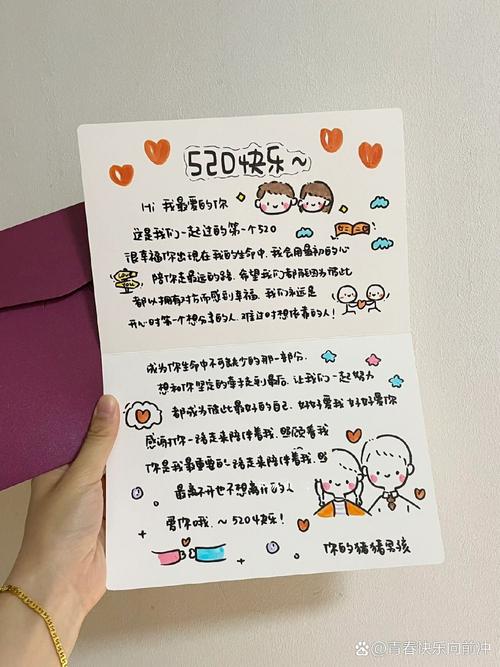 520快乐~
Hi 我最爱的你
这是我们一起过的第一个520
很幸福你出现在我的生命中,我会用最初的心
陪你走最远的路,希望我们都能因为彼此
都以拥有对方而感到幸福,我们永远是
开心时第一个想分享的人,难过时想依靠的人!
成为你生命中不可缺少的那一部分,
想和你坚定的牵手走到最后,让我们一起努力
都成为彼此最好的自己,好好爱我 好好爱你
感谢你一路走来陪伴着我,照顾着我
你是我最重要的一路走来陪伴着我,照
最离不开也不想离开的人
爱你哦,~520快乐!
你的猪猪男孩
LOVE
YOU
青春快乐向前冲